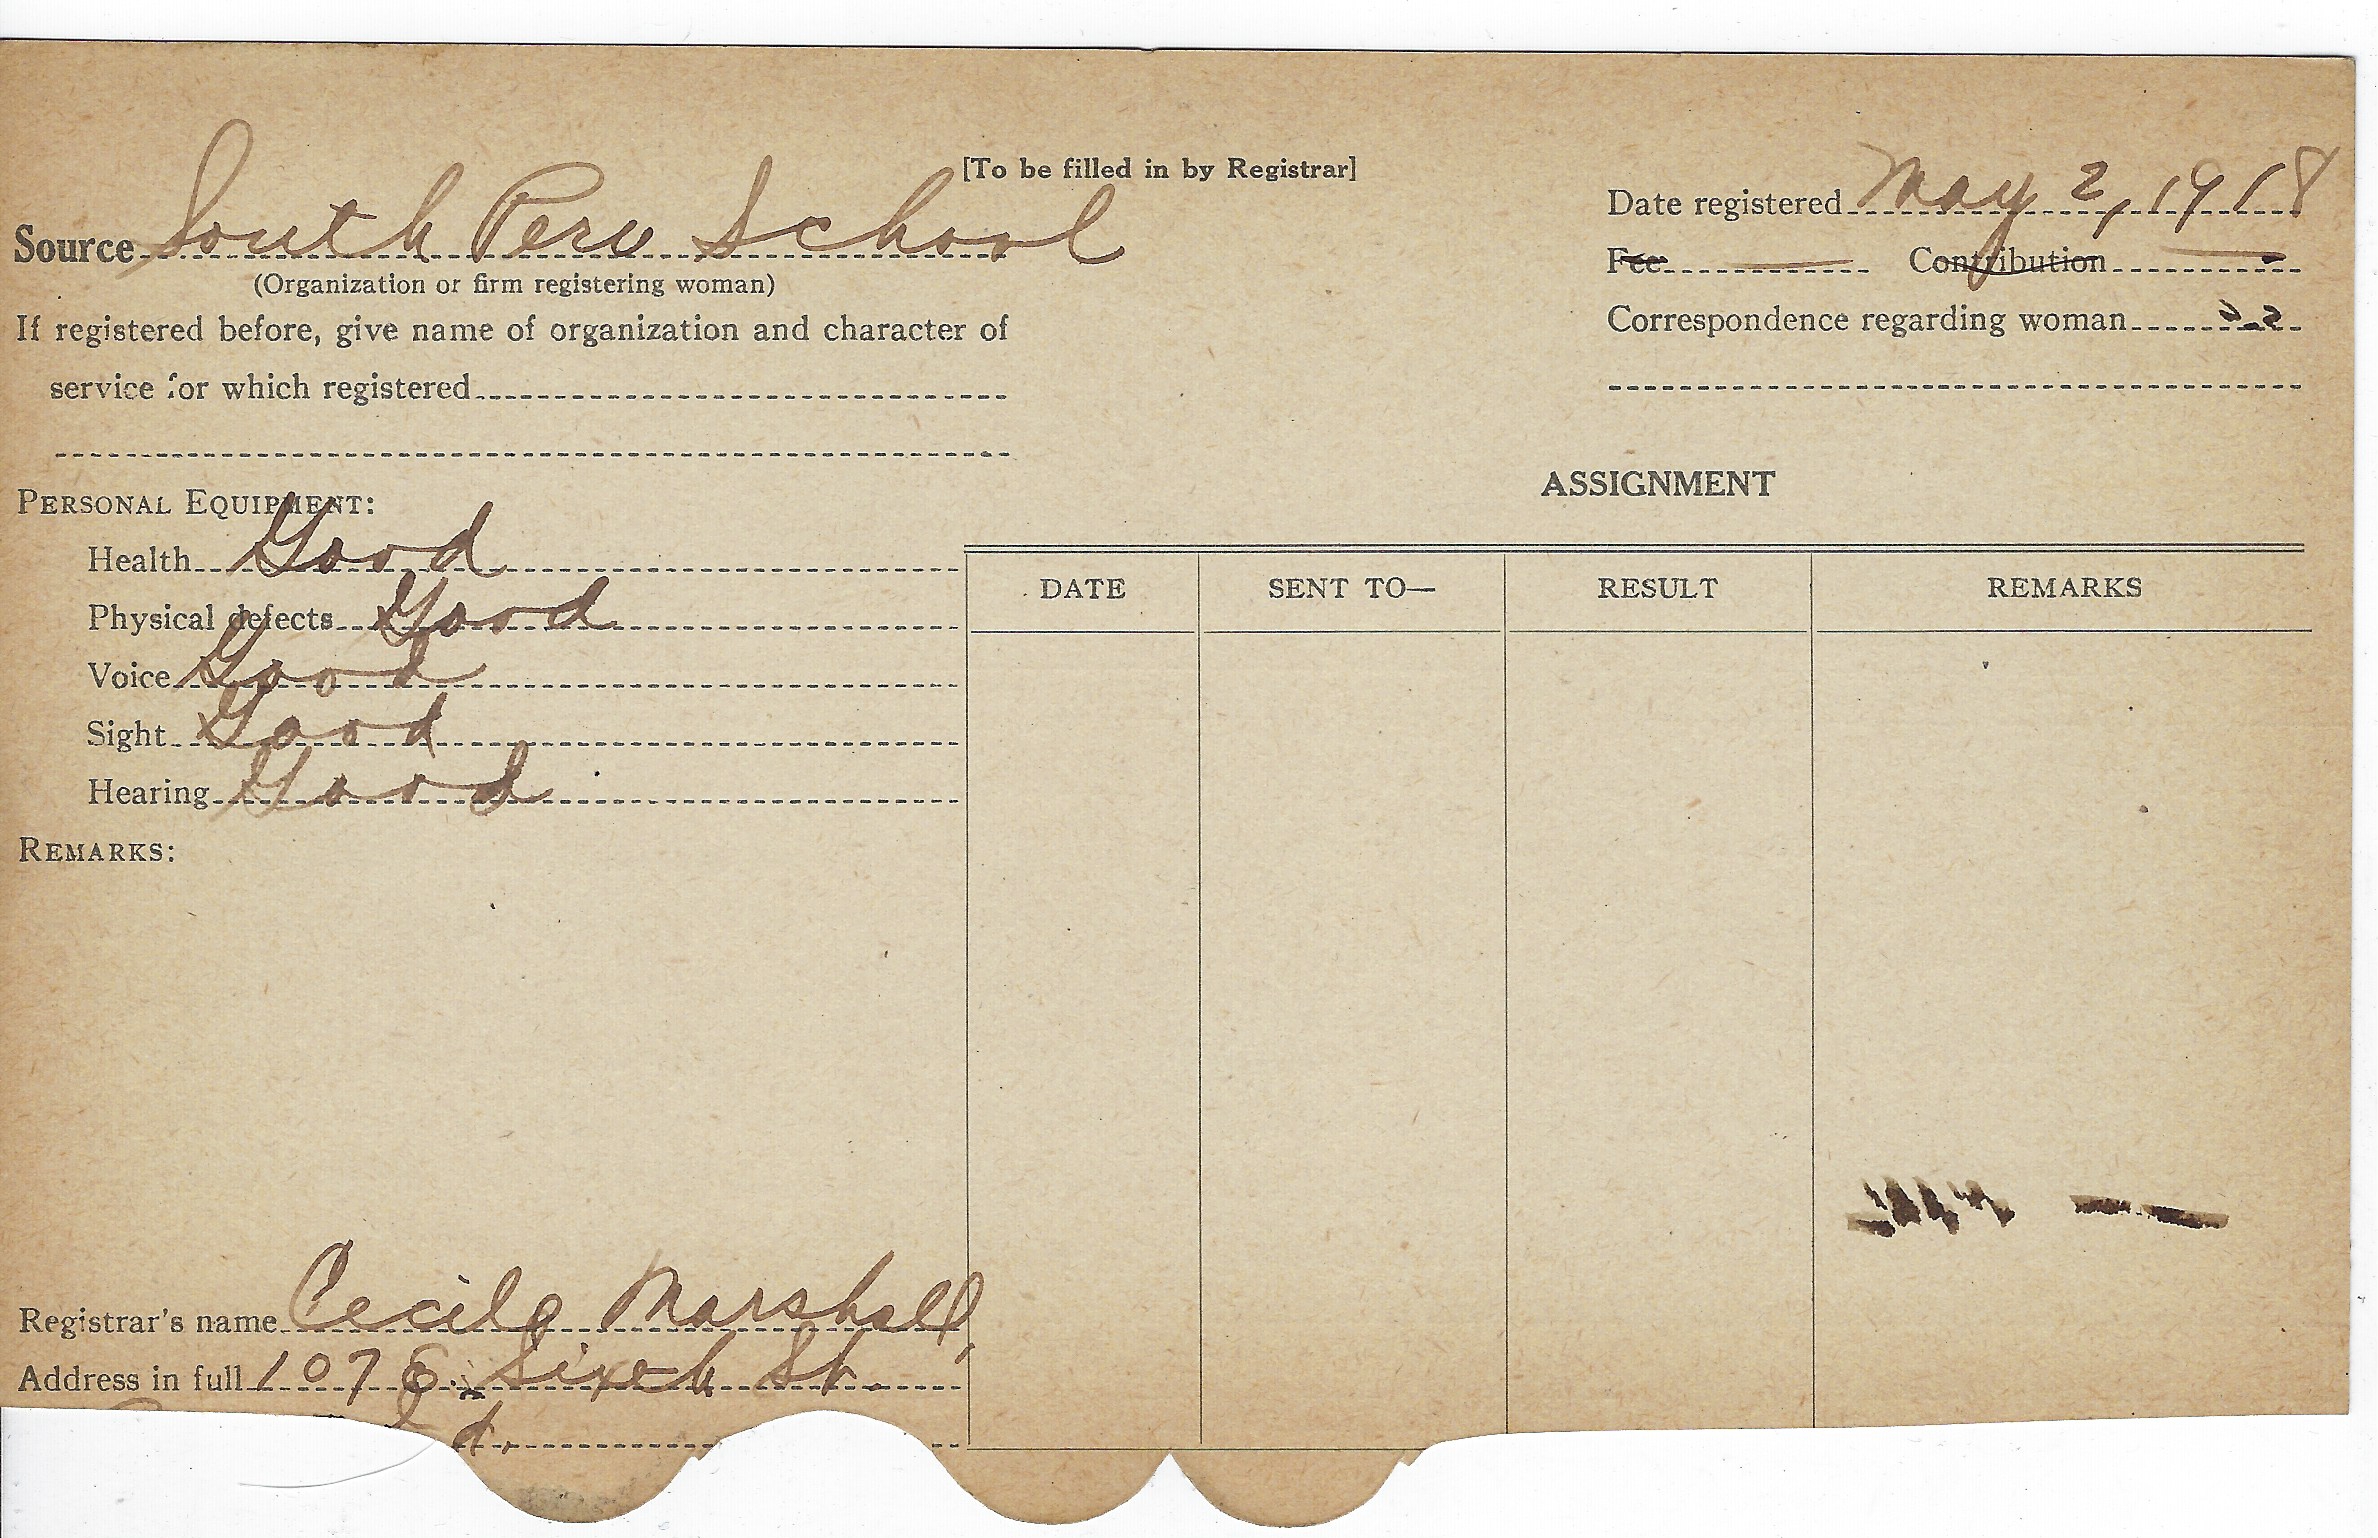 [To be filled in by Registrar]
Source South Peru School
(Organization or firm registering woman)
If registered before, give name of organization and character of
service for which registered
Date registered May 2, 1918
Fee Contribution
Correspondence regarding woman
PERSONAL EQUIPMENT:
Health Good
Physical defects Good
Voice Good
Sight Good
Hearing Good
REMARKS:
ASSIGNMENT
DATE SENT TO— RESULT REMARKS
Registrar's name Cecile Marshall,
Address in full 107 E. Sixth St.